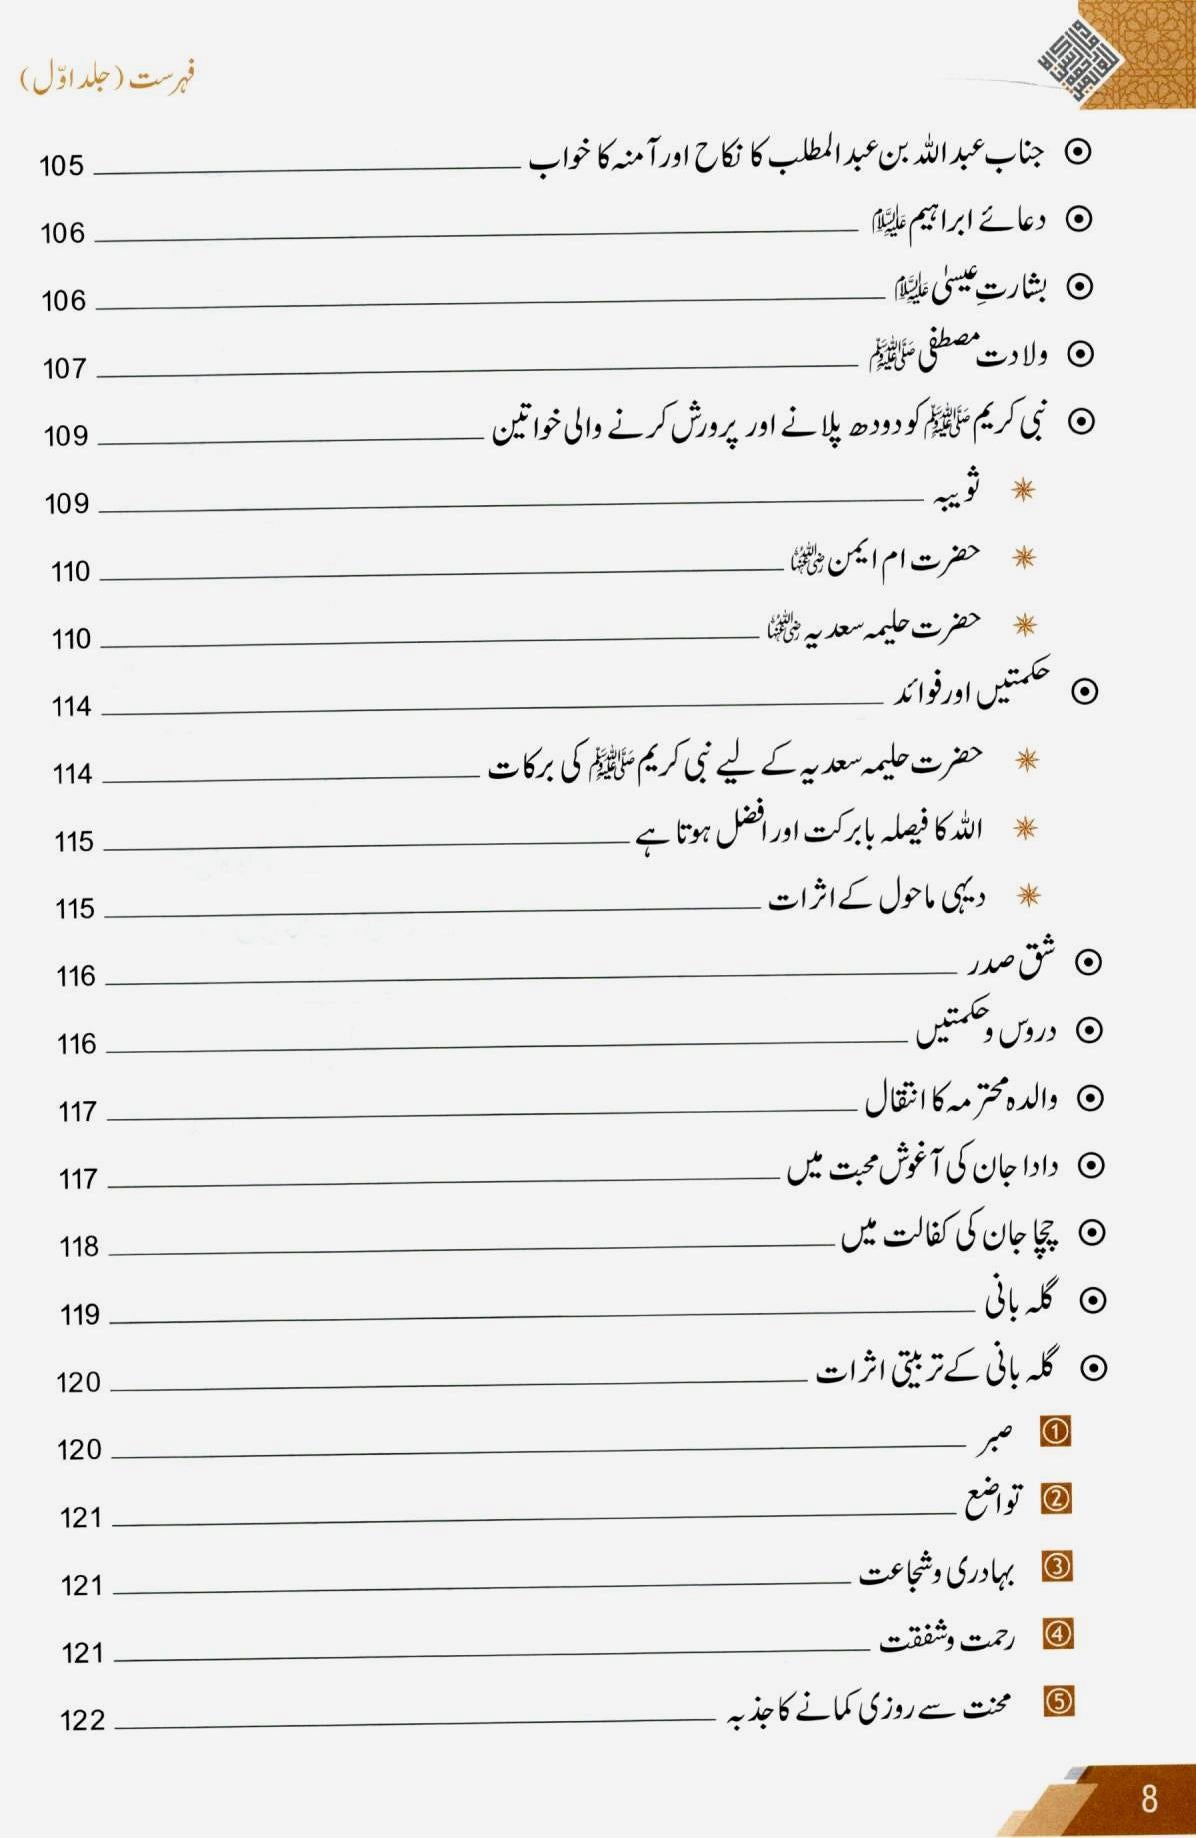 فہرست (جلد اوّل)
جناب عبد اللہ بن عبد المطلب کا نکاح اور آمنہ کا خواب 105
دعائے ابراہیم علیہ السلام 106
بشارتِ عیسیٰ علیہ السلام 106
ولادت مصطفی ﷺ 107
نبی کریم ﷺ کو دودھ پلانے اور پرورش کرنے والی خواتین 109
ثویبہ 109
حضرت ام ایمن رضی اللہ عنہا 110
حضرت حلیمہ سعدیہ رضی اللہ عنہا 110
حکمتیں اور فوائد 114
حضرت حلیمہ سعدیہ کے لیے نبی کریم ﷺ کی برکات 114
اللہ کا فیصلہ بابرکت اور افضل ہوتا ہے 115
دیہی ماحول کے اثرات 115
شق صدر 116
دروس و حکمتیں 116
والدہ محترمہ کا انتقال 117
دادا جان کی آغوش محبت میں 117
چچا جان کی کفالت میں 118
گلہ بانی 119
گلہ بانی کے تربیتی اثرات 120
① صبر 120
② تواضع 121
③ بہادری و شجاعت 121
④ رحمت و شفقت 121
⑤ محنت سے روزی کمانے کا جذبہ 122
8